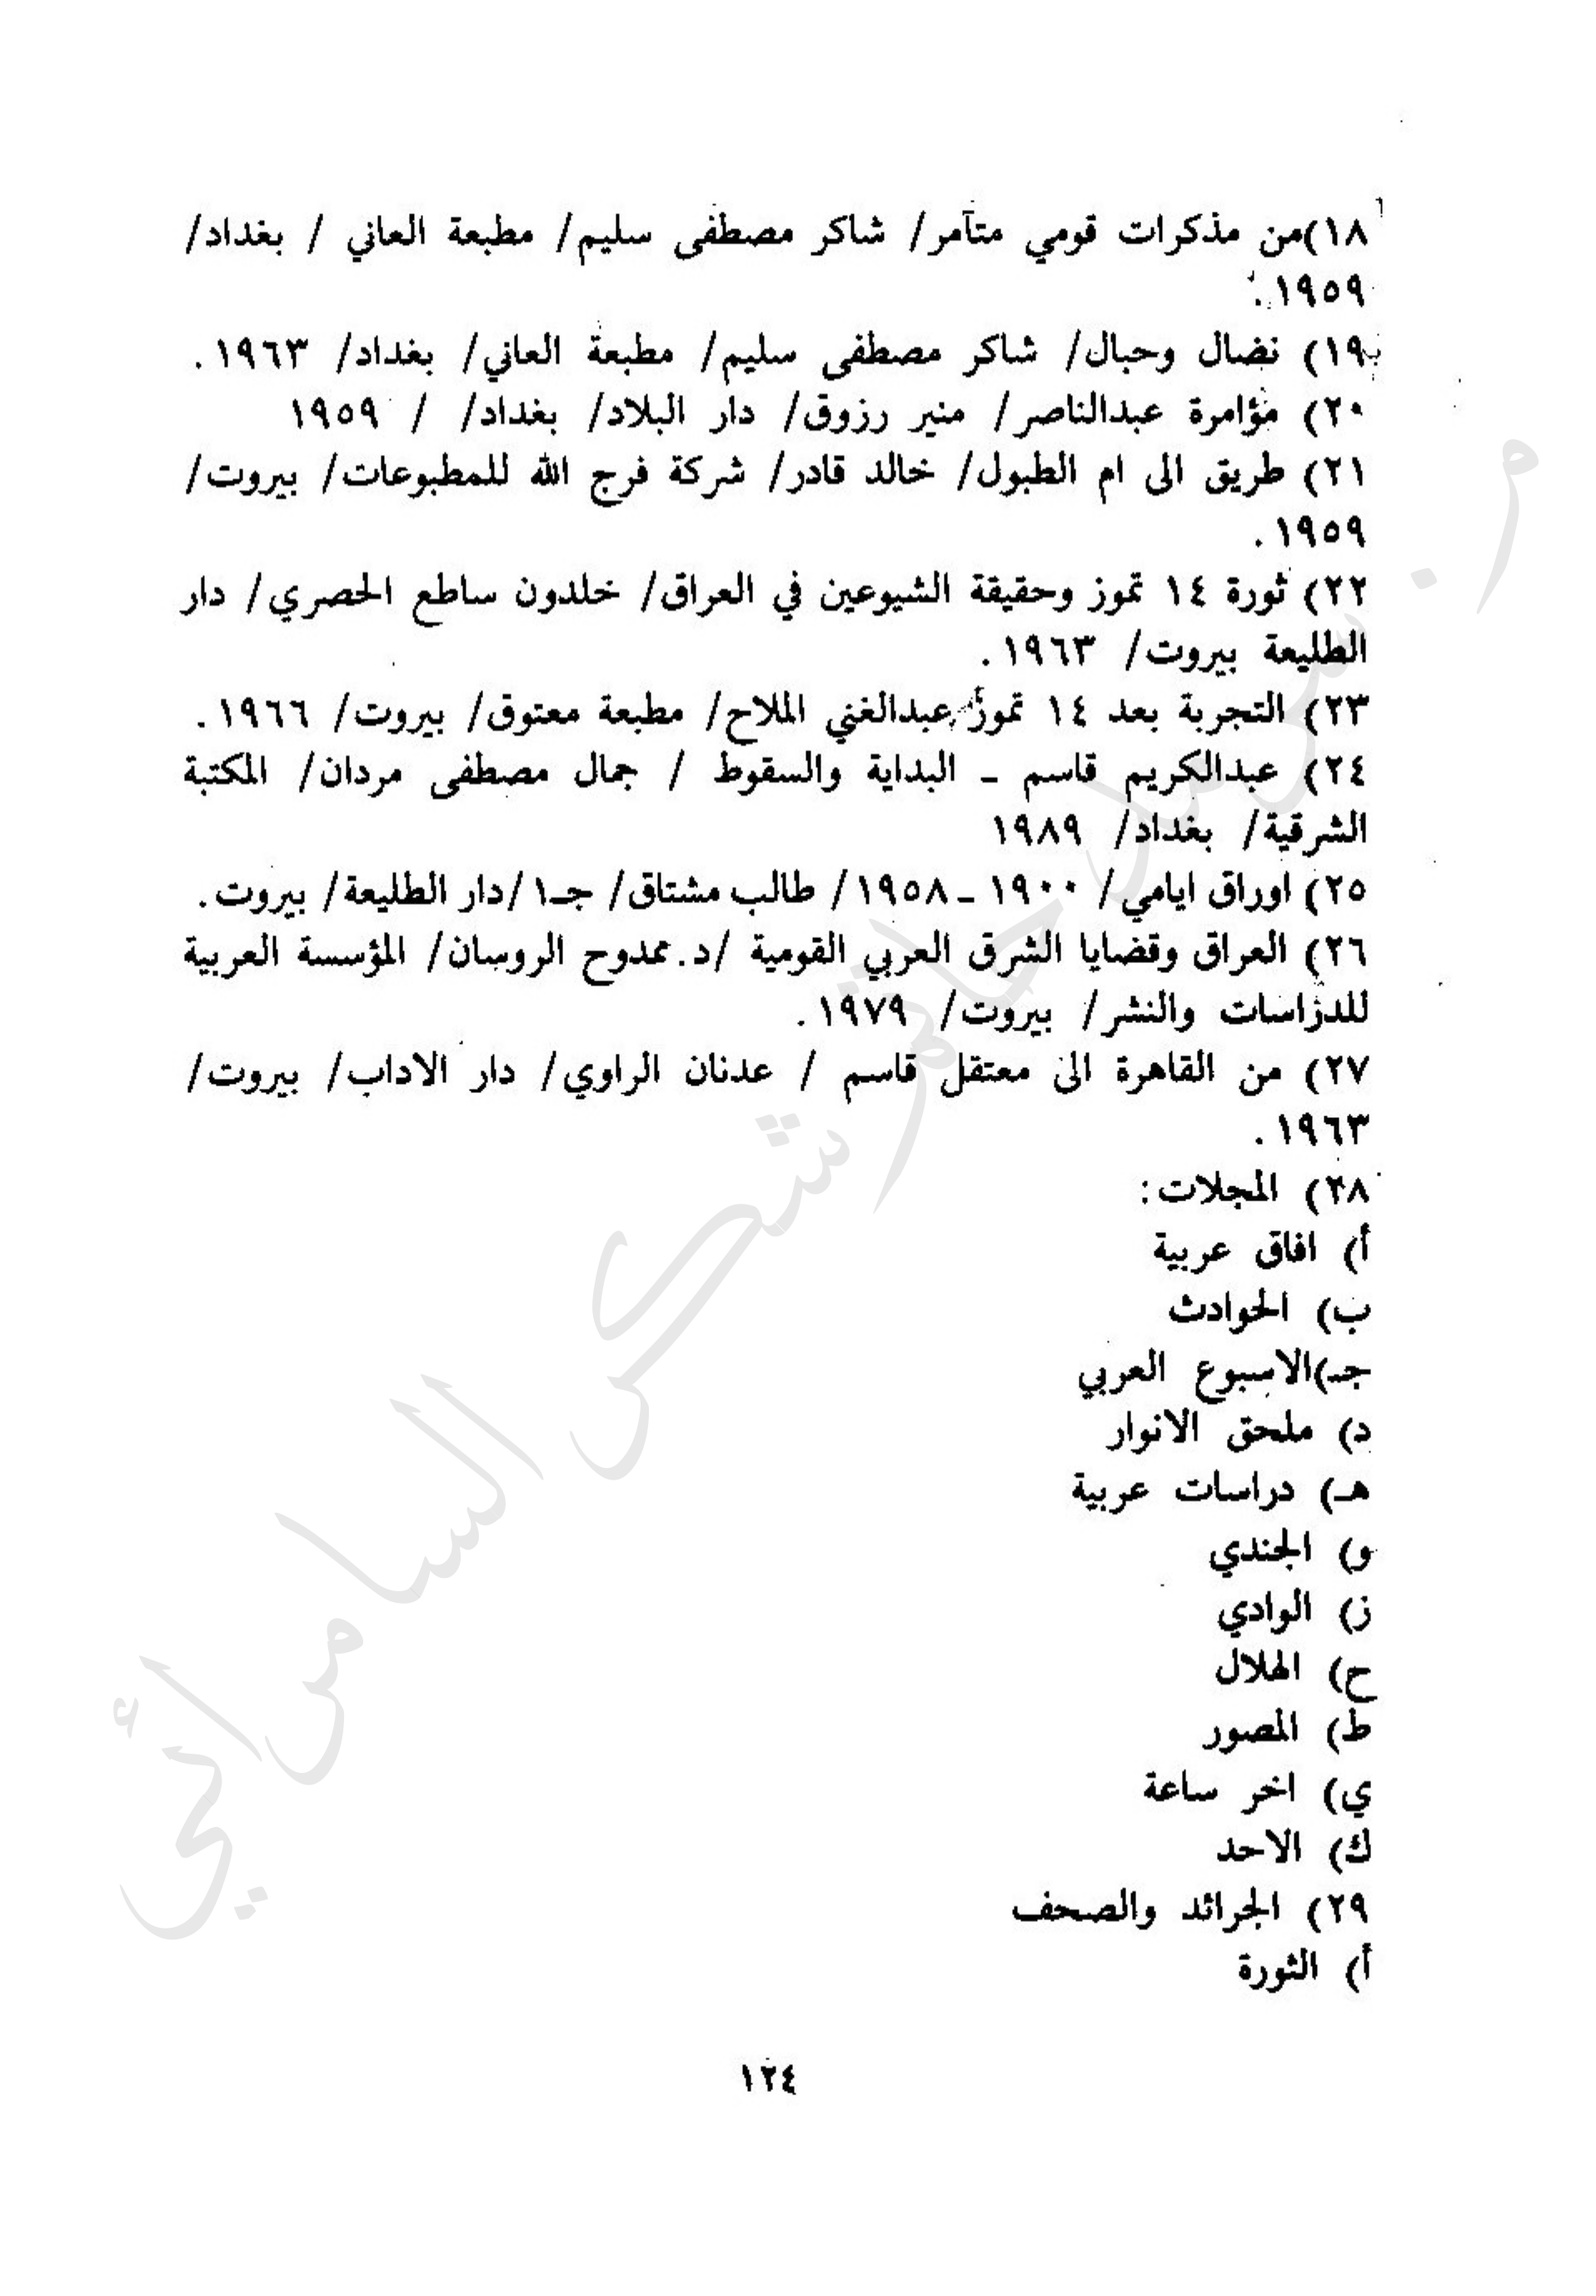 ١٨)من مذكرات قومي متآمر/ شاكر مصطفى سليم/ مطبعة العاني / بغداد/
١٩٥٩.
١٩) نضال وحبال/ شاكر مصطفى سليم/ مطبعة العاني/ بغداد/ ١٩٦٣.
٢٠) مؤامرة عبدالناصر/ منير رزوق/ دار البلاد/ بغداد/ / ١٩٥٩
٢١) طريق الى ام الطبول/ خالد قادر/ شركة فرج الله للمطبوعات/ بيروت/
١٩٥٩.
٢٢) ثورة ١٤ تموز وحقيقة الشيوعين في العراق/ خلدون ساطع الحصري/ دار
الطليعة بيروت/ ١٩٦٣.
٢٣) التجربة بعد ١٤ تموز/ عبدالغني الملاح/ مطبعة معتوق/ بيروت/ ١٩٦٦.
٢٤) عبدالكريم قاسم ـ البداية والسقوط / جمال مصطفى مردان/ المكتبة
الشرقية/ بغداد/ ١٩٨٩
٢٥) اوراق ايامي/ ١٩٠٠ ـ ١٩٥٨/ طالب مشتاق/ جـ١/دار الطليعة/ بيروت.
٢٦) العراق وقضايا الشرق العربي القومية /د.ممدوح الروسان/ المؤسسة العربية
للدراسات والنشر/ بيروت/ ١٩٧٩.
٢٧) من القاهرة الى معتقل قاسم / عدنان الراوي/ دار الاداب/ بيروت/
١٩٦٣.
٢٨) المجلات:
أ) افاق عربية
ب) الحوادث
جـ)الاسبوع العربي
د) ملحق الانوار
هـ) دراسات عربية
و) الجندي
ز) الوادي
ح) الهلال
ط) المصور
ي) اخر ساعة
ك) الاحد
٢٩) الجرائد والصحف
أ) الثورة
١٢٤